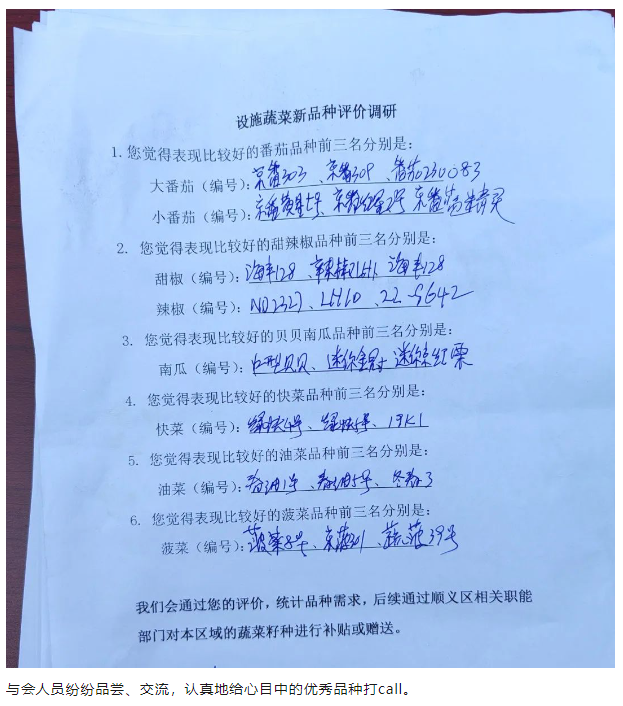 设施蔬菜新品种评价调研
1.您觉得表现比较好的番茄品种前三名分别是:
大番茄(编号):京番303、京番309、番茄0230083
小番茄(编号):京番黄星5号、京番红星2号 京番
2. 您觉得表现比较好的甜辣椒品种前三名分别是:
甜椒(编号):海丰128、辣椒 海丰128
辣椒(编号):NO2327、LH10、22-9642
3. 您觉得表现比较好的贝贝南瓜品种前三名分别是:
南瓜(编号):巨型贝贝、迷你金冠 迷你红栗
4. 您觉得表现比较好的快菜品种前三名分别是:
快菜(编号):绿快4号、19K1
5. 您觉得表现比较好的油菜品种前三名分别是:
油菜(编号):春油1号、春油5号、冬春3
6. 您觉得表现比较好的菠菜品种前三名分别是:
菠菜(编号):菠菜8号、京菠301、蔬菠39号
我们会通过您的评价,统计品种需求,后续通过顺义区相关职能
部门对本区域的蔬菜籽种进行补贴或赠送。
与会人员纷纷品尝、交流,认真地给心目中的优秀品种打call。